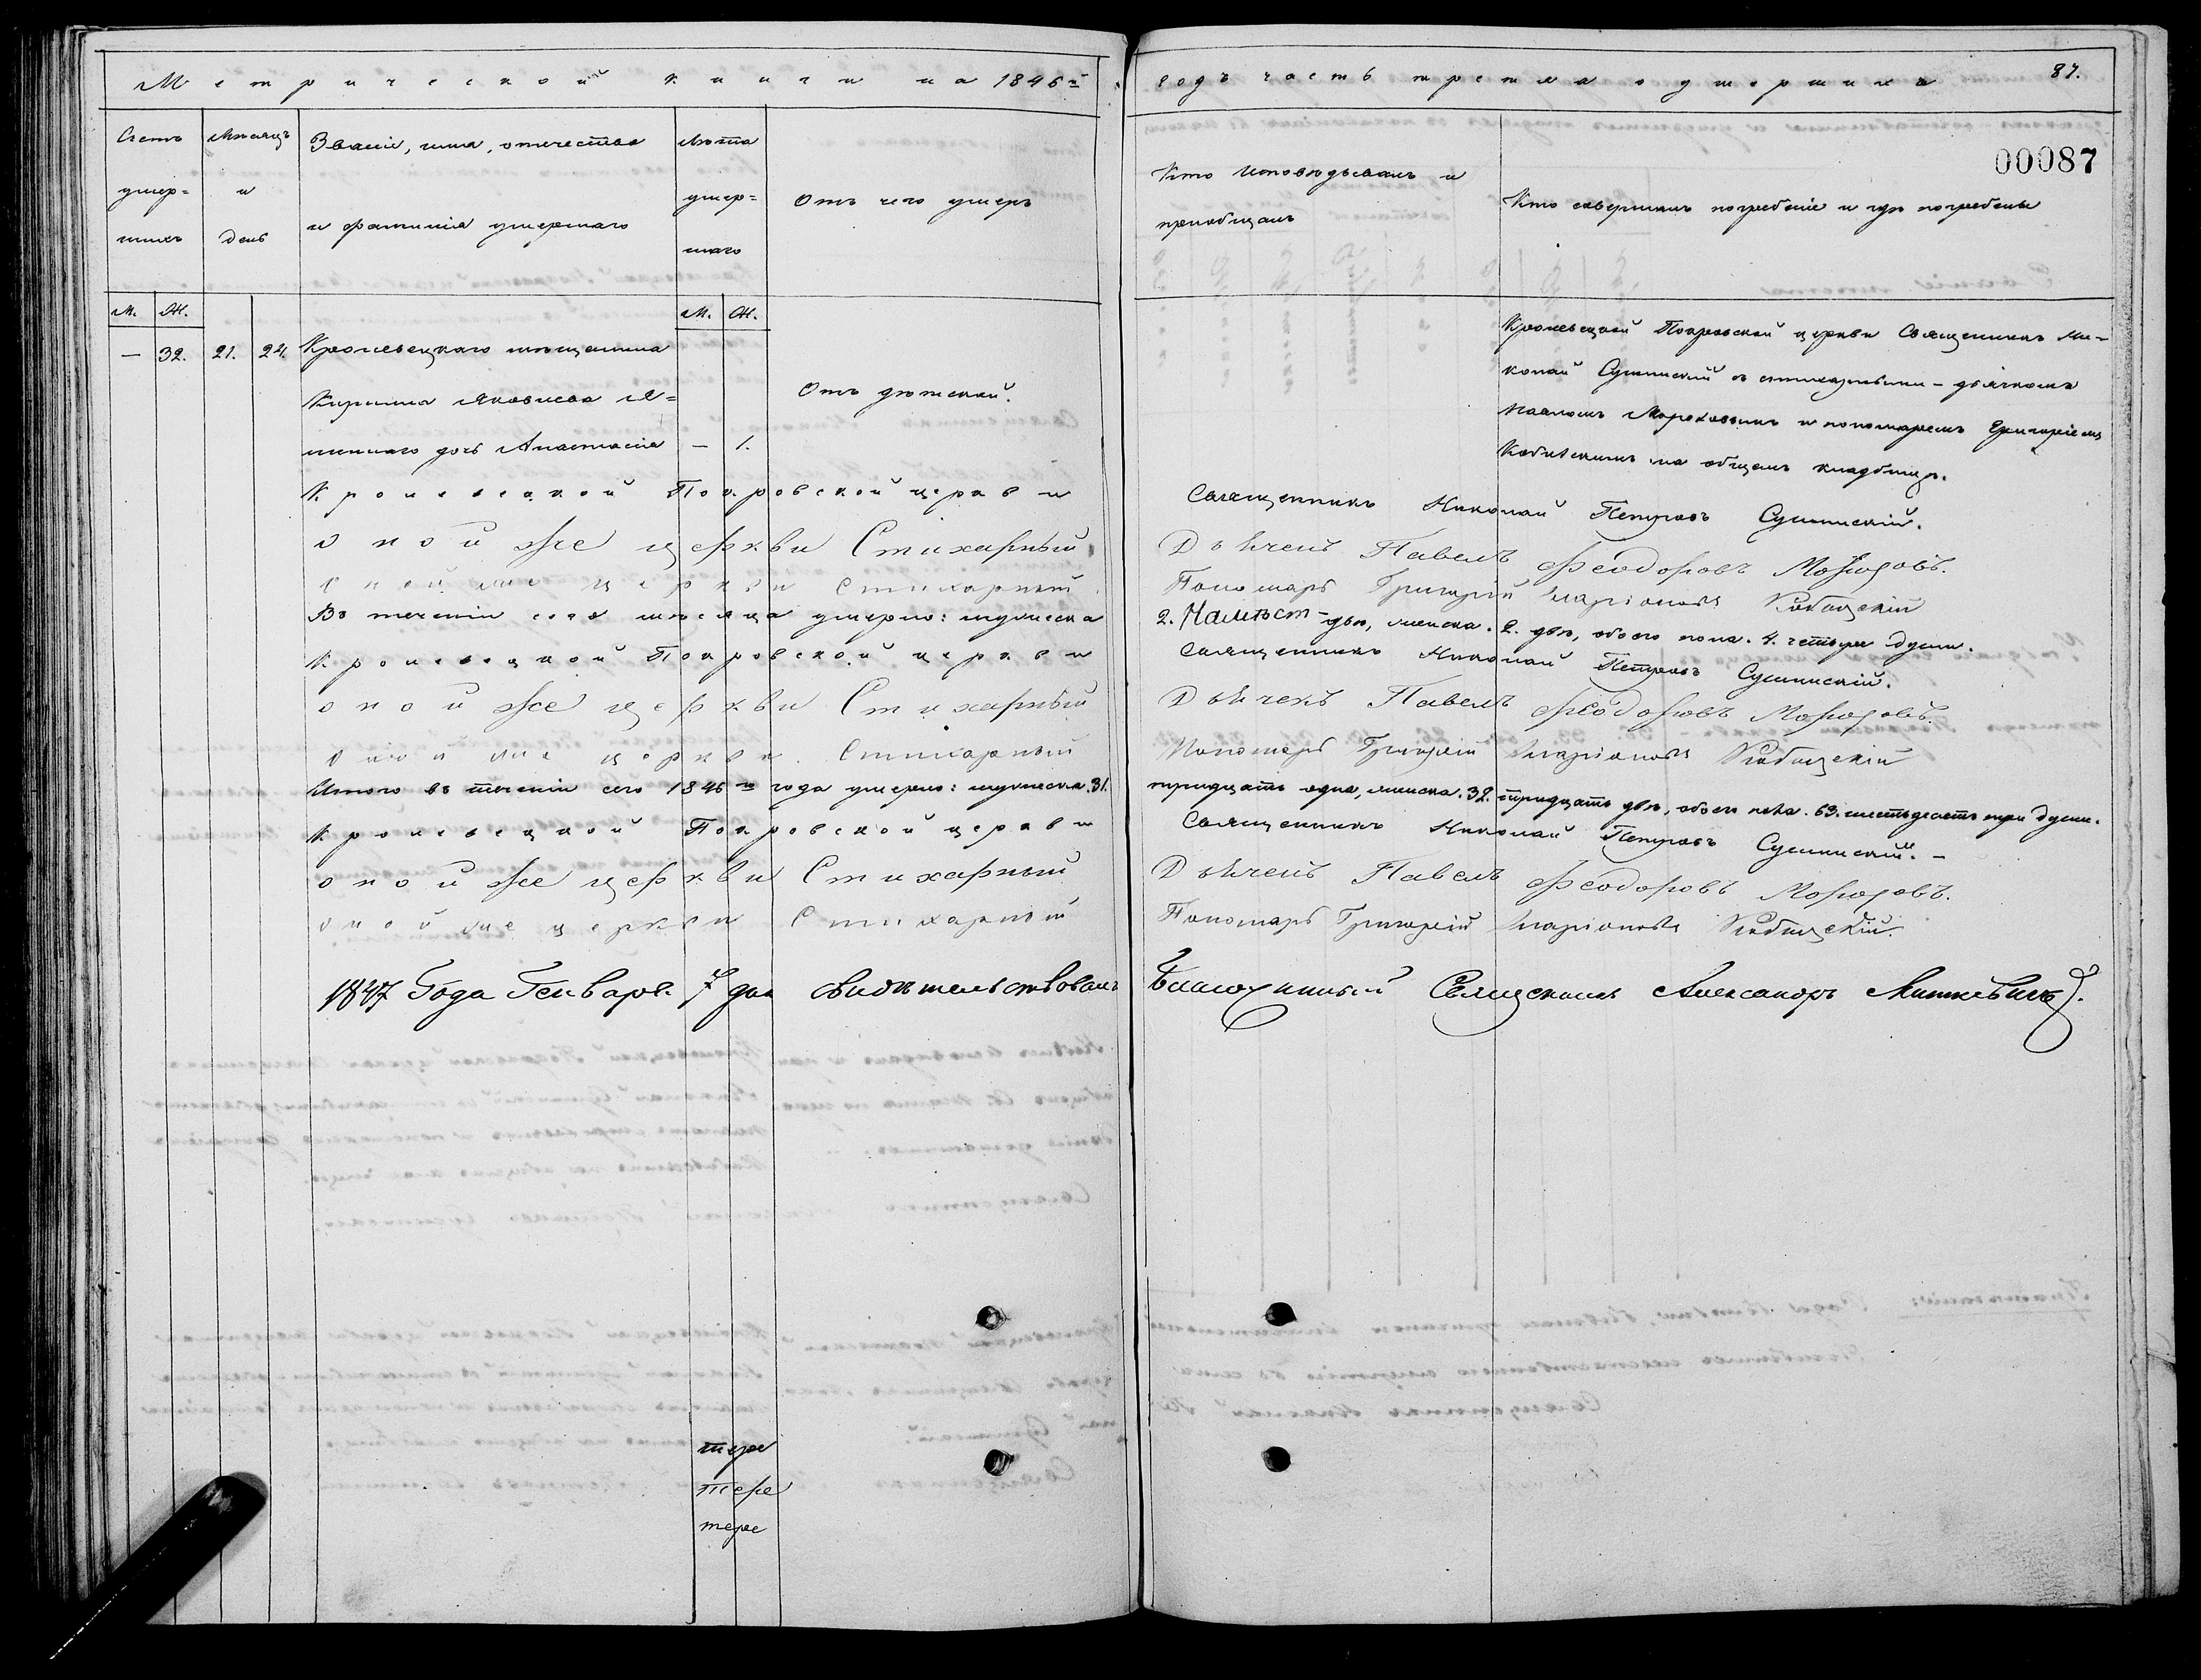 Метрической книги на 1846й годъ часть третья о умершихъ 87.
00087
Счетъ умер=шихъ
Мѣсяцъ и день
Званіе, имя, отечество и фамилія умершаго
Лѣта умер=шаго
Отъ чего умеръ
Кто исповѣдывалъ и пріобщалъ
Кто совершилъ погребеніе и гдѣ погребены
М. Ж. М. Ж.
— 32. 21. 24. Кролевецкаго мѣщанина
Кирилла Яковлева
дочь Анастасія — 1.
Отъ дѣтской.
Кролевецкой Покровской церкви Священникъ Ни-
колай Сушинскій съ стихарными – дьячкомъ
Павломъ Мороховымъ и пономаремъ Григоріемъ
на общемъ кладбищѣ.
Кролевецкой Покровской церкви Священникъ Николай Петровъ Сушинскій.
оной же церкви Стихарный Дьячекъ Павелъ Феодоровъ
оной же церкви Стихарный Пономарь Григорій Иларіоновъ
Въ теченіи сего мѣсяца умерло: мужеска 2. двѣ, женска. 2. двѣ, обоего пола. 4. четыре души.
Кролевецкой Покровской церкви Священникъ Николай Петровъ Сушинскій.
оной же церкви Стихарный Дьячекъ Павелъ Феодоровъ
оной же церкви Стихарный Пономарь Григорій Иларіоновъ
Итого въ теченіи сего 1846го года умерло: мужеска. 31. тридцать одна, женска. 32. тридцать двѣ, обоего пола. 63. шестьдесятъ три души.
Кролевецкой Покровской церкви Священникъ Николай Петровъ Сушинскій. –
оной же церкви Стихарный Дьячекъ Павелъ Феодоровъ
оной же церкви Стихарный Пономарь Григорій Иларіоновъ
1847 Года Генваря 7 дня свидѣтельствовалъ Благочинный Священникъ Александръ